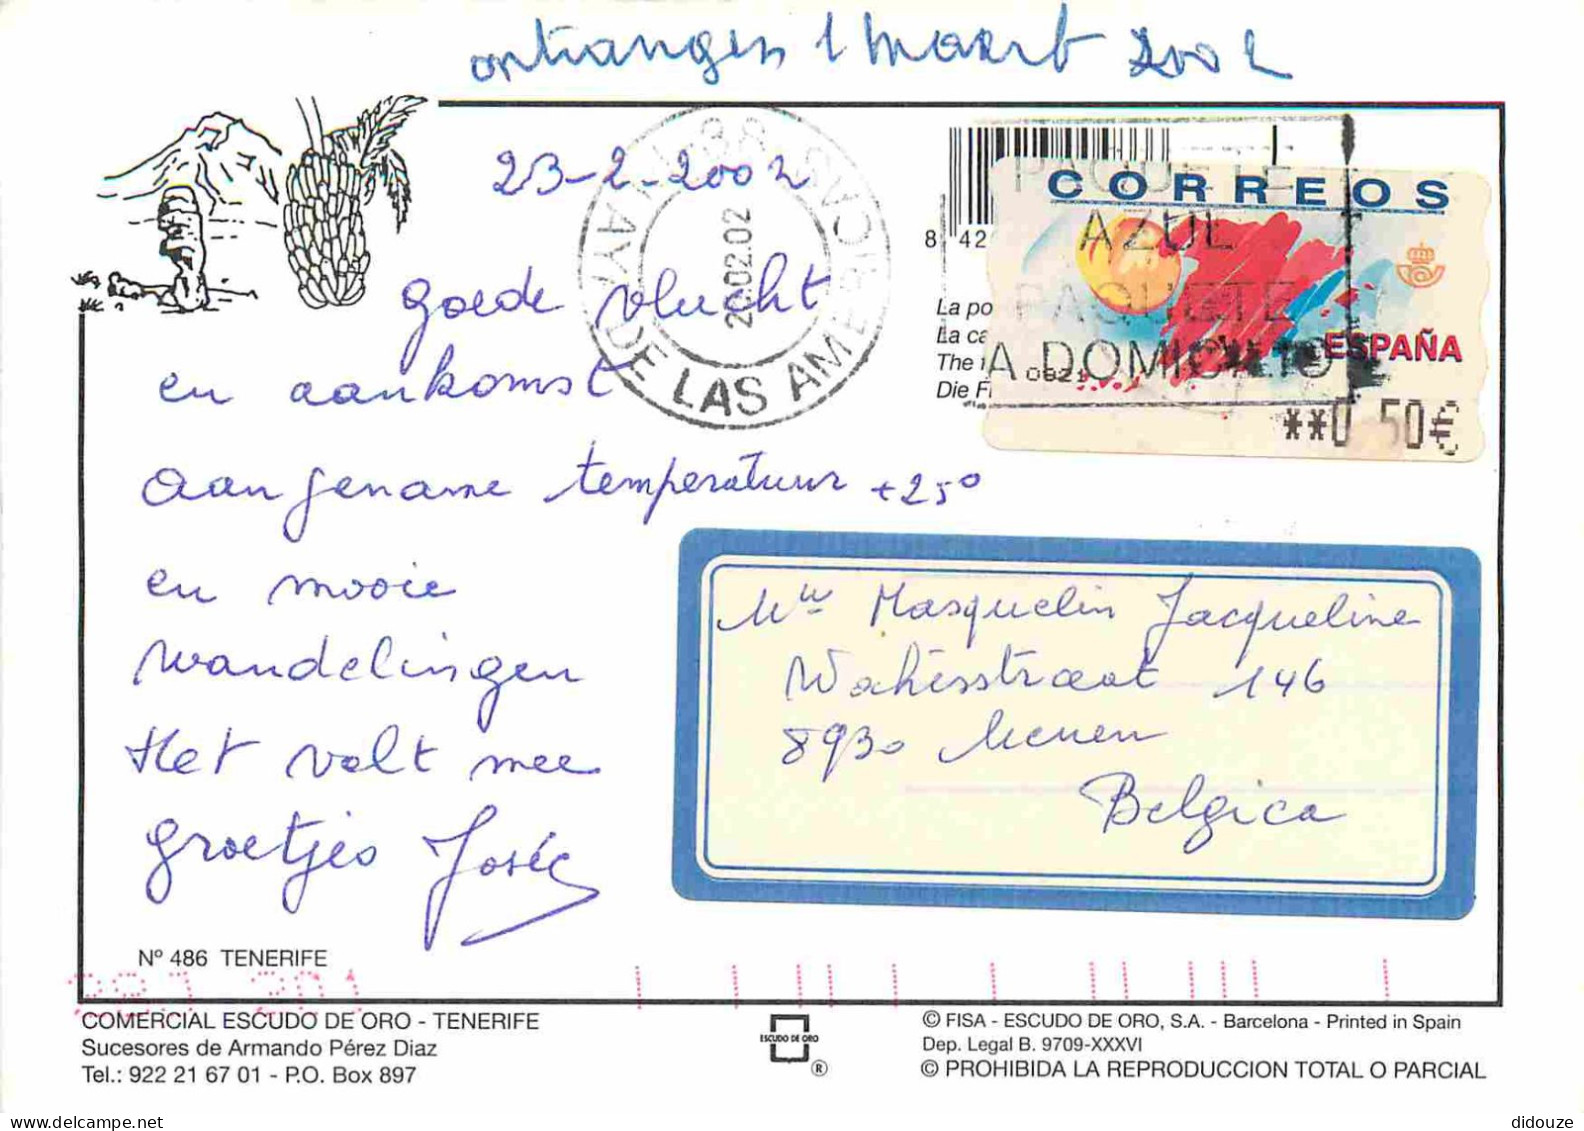 ontvangen 1 Maart 2002
23-2-2002
goede vlucht
en aankomst
aangename temperatuur +25°
en mooie
wandelingen
Het valt mee
groetjes Josée
38
PLAYA DE LAS AMERICAS
26.02.02
CORREOS
PAQUETE
AZUL
PAQUETE
A DOMICILIO
ESPAÑA
0821
**0.50€
8 42
La po
La ca
The
Die F
Masquelin Jacqueline
146
8930 Menen
Belgica
Nº 486 TENERIFE
COMERCIAL ESCUDO DE ORO - TENERIFE
Sucesores de Armando Pérez Diaz
Tel.: 922 21 67 01 - P.O. Box 897
ESCUDO DE ORO
®
© FISA - ESCUDO DE ORO, S.A. - Barcelona - Printed in Spain
Dep. Legal B. 9709-XXXVI
© PROHIBIDA LA REPRODUCCION TOTAL O PARCIAL
didouze